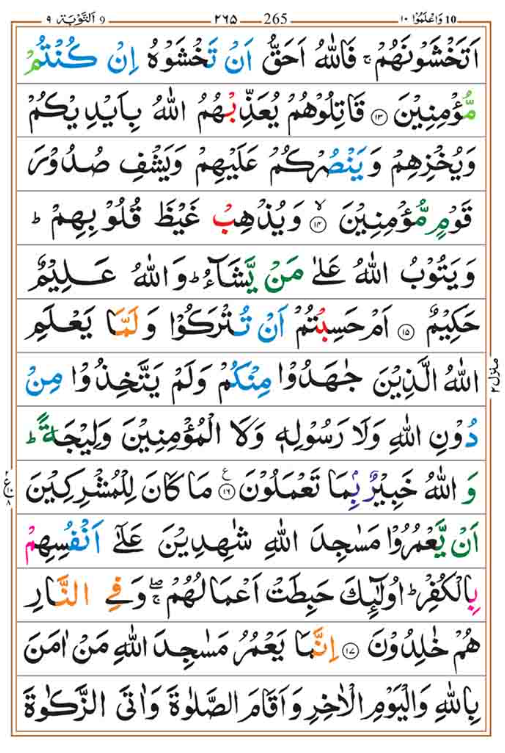 10 وَاعْلَمُوْٓا ١٠ 265 ٢٦٥ 9 اَلتَّوْبَة ٩
اَتَخْشَوْنَهُمْ ۚ فَاللّٰهُ اَحَقُّ اَنْ تَخْشَوْهُ اِنْ كُنْتُمْ
مُّؤْمِنِيْنَ ۝١٣ قَاتِلُوْهُمْ يُعَذِّبْهُمُ اللّٰهُ بِاَيْدِيْكُمْ
وَيُخْزِهِمْ وَيَنْصُرْكُمْ عَلَيْهِمْ وَيَشْفِ صُدُوْرَ
قَوْمٍ مُّؤْمِنِيْنَ ۙ۝١٤ وَيُذْهِبْ غَيْظَ قُلُوْبِهِمْ ؕ
وَيَتُوْبُ اللّٰهُ عَلٰى مَنْ يَّشَآءُ ؕ وَاللّٰهُ عَلِيْمٌ
حَكِيْمٌ ۝١٥ اَمْ حَسِبْتُمْ اَنْ تُتْرَكُوْا وَلَمَّا يَعْلَمِ
اللّٰهُ الَّذِيْنَ جٰهَدُوْا مِنْكُمْ وَلَمْ يَتَّخِذُوْا مِنْ
منزل ٢
دُوْنِ اللّٰهِ وَلَا رَسُوْلِهٖ وَلَا الْمُؤْمِنِيْنَ وَلِيْجَةً ؕ
وَاللّٰهُ خَبِيْرٌۢ بِمَا تَعْمَلُوْنَ ۝١٦ ع مَا كَانَ لِلْمُشْرِكِيْنَ
اَنْ يَّعْمُرُوْا مَسٰجِدَ اللّٰهِ شٰهِدِيْنَ عَلٰٓى اَنْفُسِهِمْ
بِالْكُفْرِ ؕ اُولٰٓئِكَ حَبِطَتْ اَعْمَالُهُمْ ۖۚ وَفِي النَّارِ
هُمْ خٰلِدُوْنَ ۝١٧ اِنَّمَا يَعْمُرُ مَسٰجِدَ اللّٰهِ مَنْ اٰمَنَ
بِاللّٰهِ وَالْيَوْمِ الْاٰخِرِ وَاَقَامَ الصَّلٰوةَ وَاٰتَى الزَّكٰوةَ